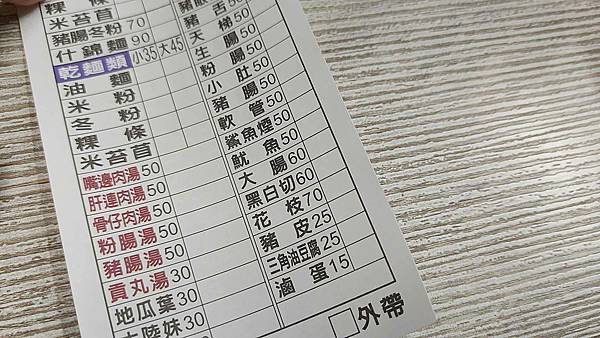 粿條
米苔目
豬腸冬粉70
什錦麵90
乾麵類 小35 大45
油麵
米粉
冬粉
粿條
米苔目
嘴邊肉湯50
肝連肉湯50
骨仔肉湯50
粉腸湯50
豬腸湯50
貢丸湯30
地瓜葉30
大陸妹30
豬舌50
天梯50
生腸50
粉腸50
小肚50
豬腸50
軟管50
鯊魚煙50
魷魚50
大腸60
黑白切60
花枝70
豬皮25
三角油豆腐25
滷蛋15
外帶